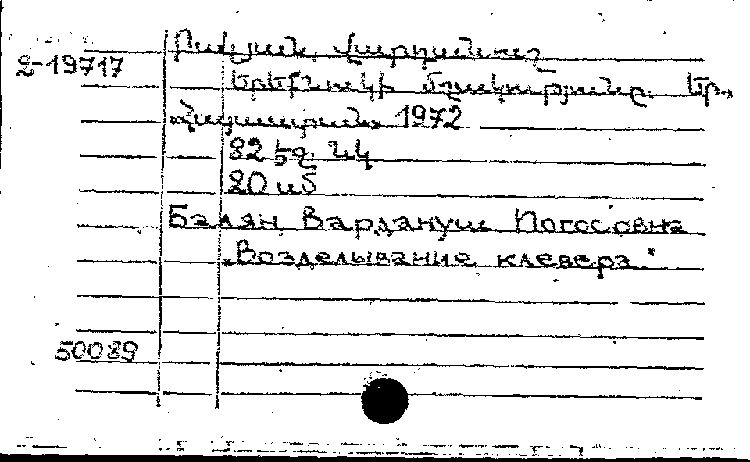 2-19717
Բալյան, Վարդանուշ
Երեքնուկի մշակությունը. Եր.,
«Հայաստան» 1972
82 էջ. նկ
20 կոպ
Балян Вардануш Погосовна
„Возделывание клевера“
50039